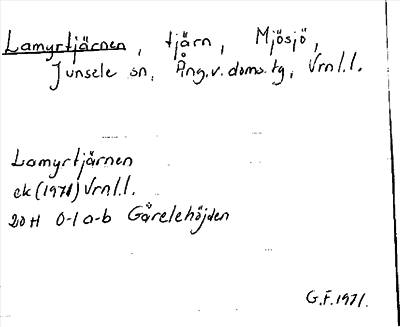 Lamyrtjärnen, tjärn, Mjösjö,
Junsele sn, Ång.v.doms.tg, Vrnl.l.
Lamyrtjärnen
ek (1971) Vrnl.l.
20H 0-1 a-b Gårelehöjden
G.F.1971.